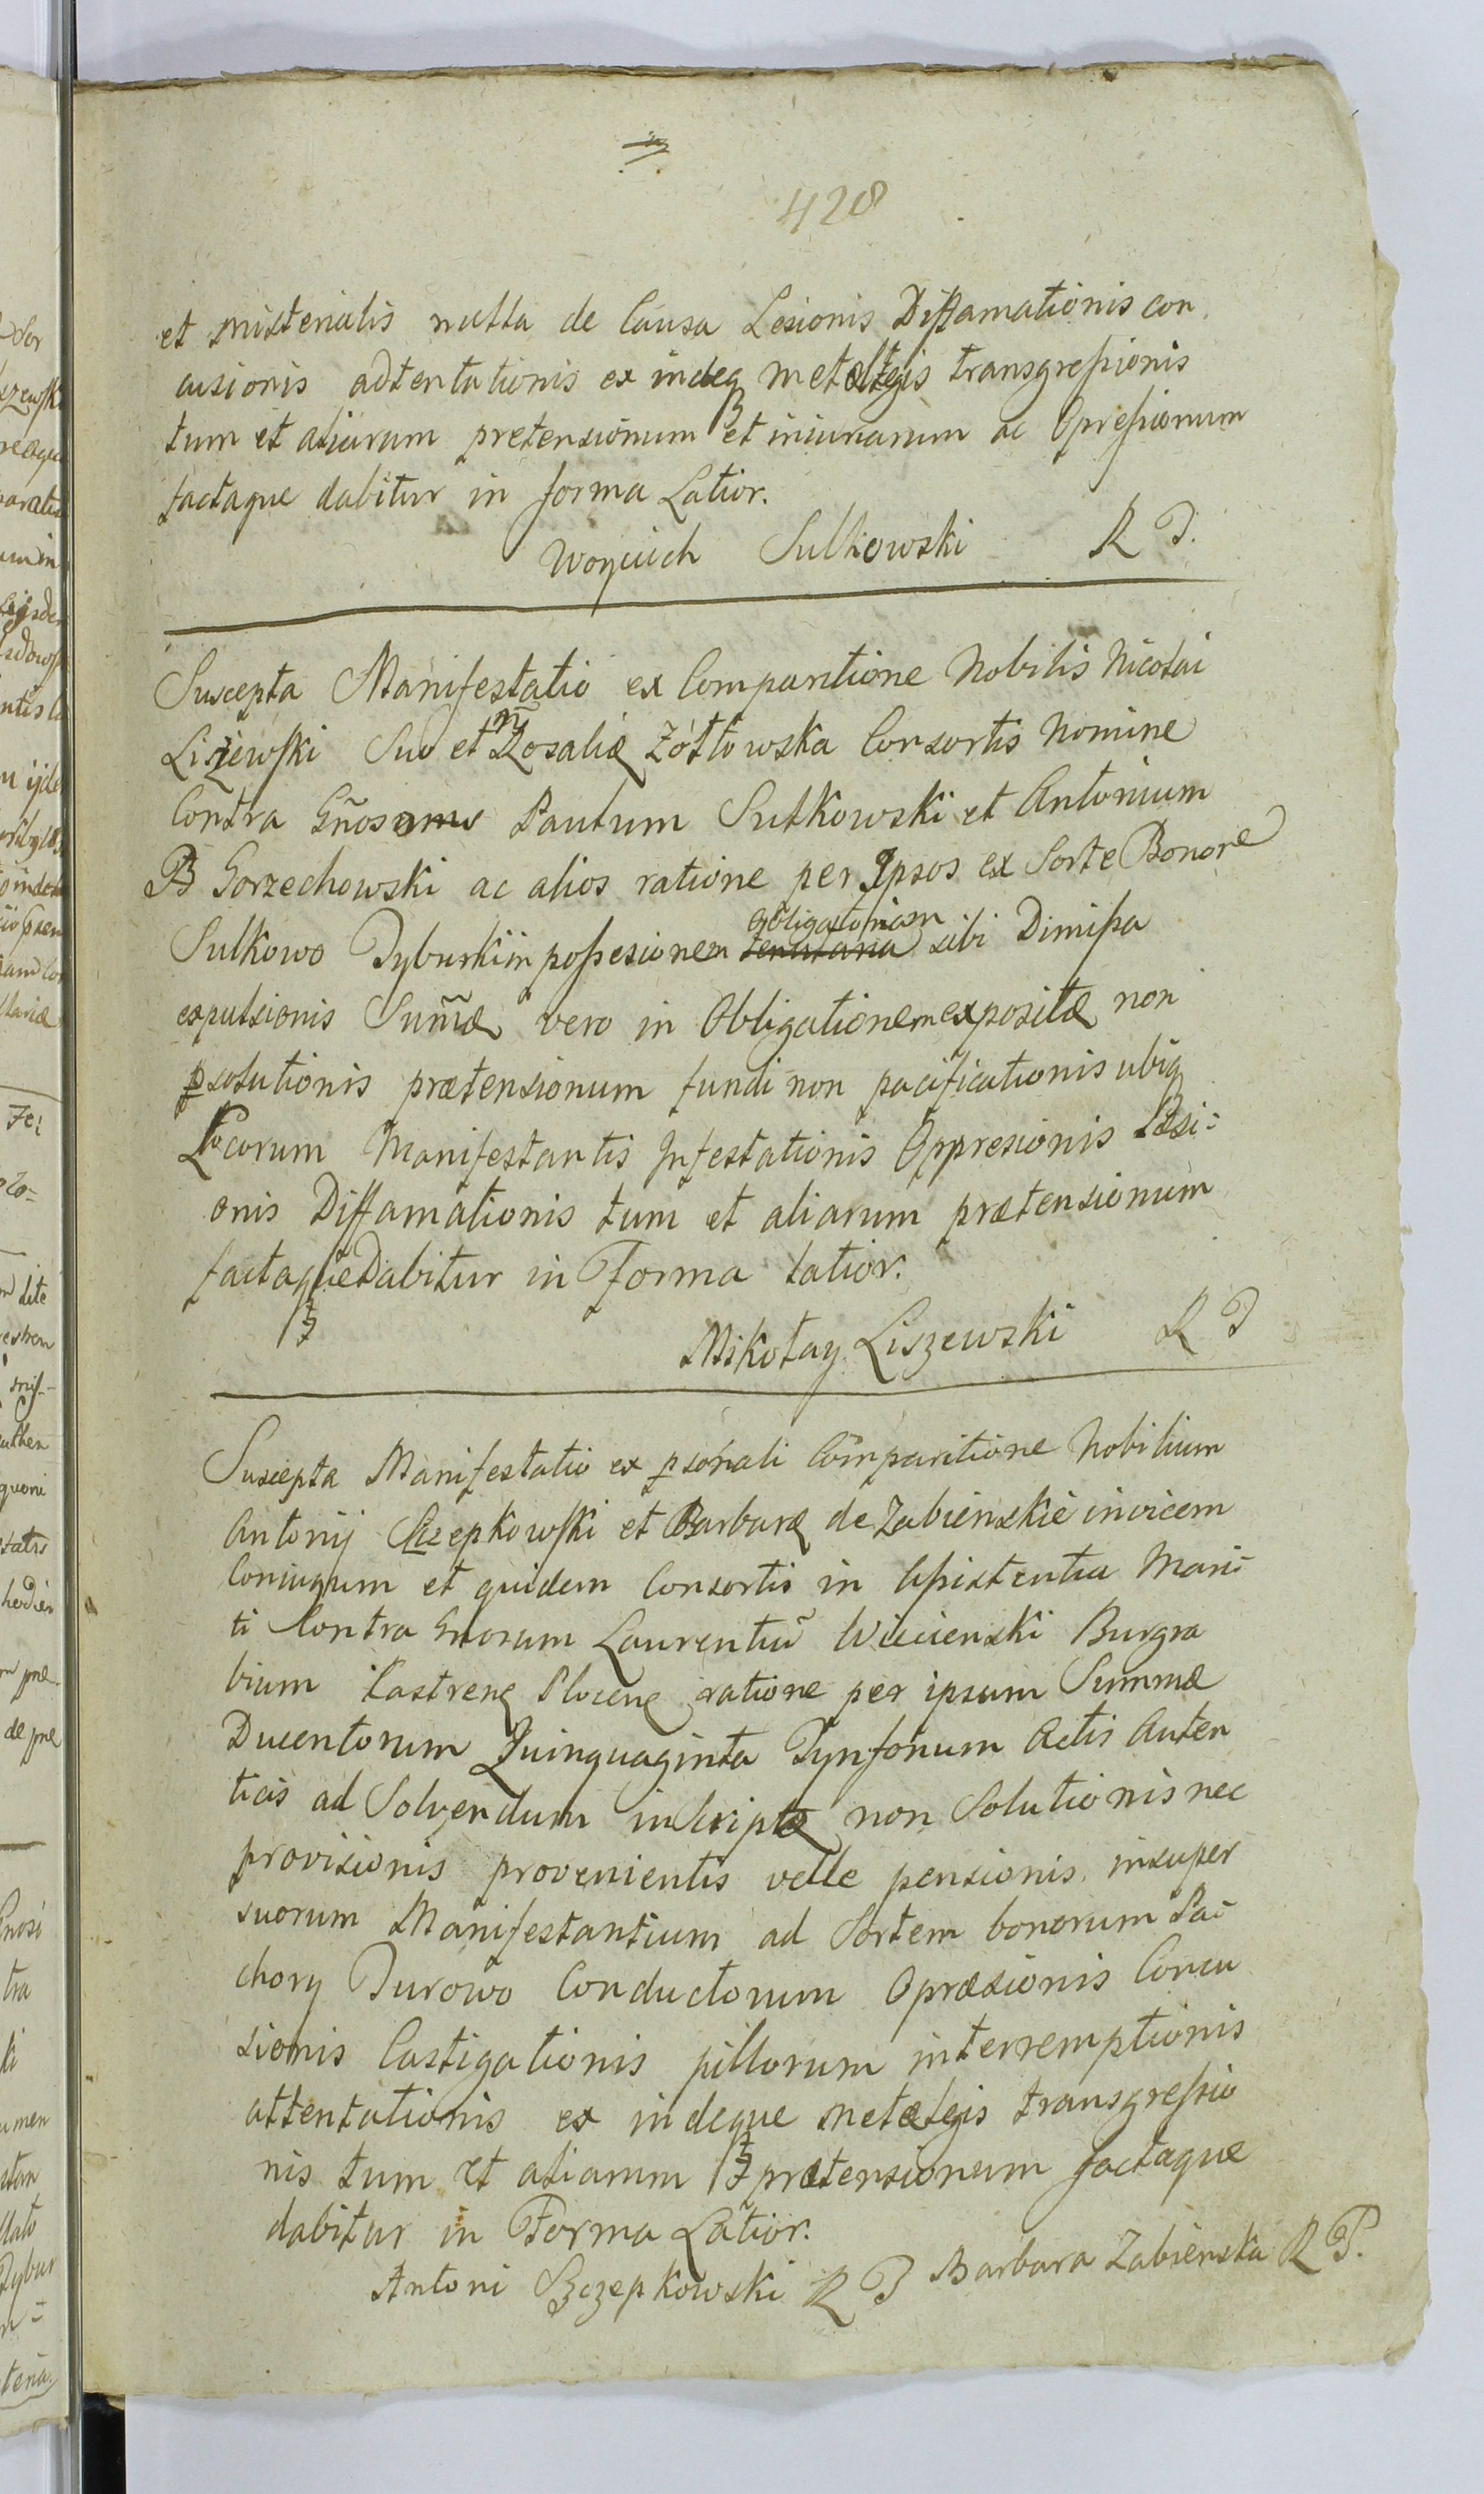 428
et misterialis nulla de Causa Lesionis Diffamationis con
cusionis adtentationis ex indeq metæ legis transgreßionis
tum et aliarum pretensionum et iniuriarum ac Opreßionum
factaque dabitur in forma Latior.
Woyciech Sulkowski R P.
Suscepta Manifestatio ex Comparitione Nobilis Nicolai
Liszewski Suo et Rosaliæ Zółtowska Consortis Nomine
Contra Gñosos Paulum Sutkowski et Antonium
Gorzechowski ac alios ratione per Ipsos ex Sorte Bonore
Sulkowo Tyburki in poßesionem obligatoriam sibi Dimißa
expulsionis Sum̃æ vero in Obligationem expositæ non
psolutionis prætensionum fundi non pacificationis ubiq
Locorum Manifestantis Infestationis Oppresionis Læsi=
onis Diffamationis tum et aliarum prætensionum
factaque Dabitur in Forma latior.
Mikołay Liszewski R P
Suscepta Manifestatio ex psonali Comparitione Nobilium
Antonij Szczepkowski et Barbaræ de Zabienskie invicem
Coniugum et quidem Consortis in Aßistentia Mari=
ti Contra Gnosum Laurentiũ Wilicienski Burgra
bium Castrenę Plocenę ratione per ipsum Summæ
Ducentorum Quinquaginta Tynfonum Actis Auten
ticis ad Solvendum inscriptæ non Solutionis nec
provisionis provenientis velle pensionis insuper
suorum Manifestantium ad Sortem bonorum Pa=
chory Turowo Conductorum Opræsionis Concu
sionis Castigationis pillorum interremptionis
attentationis ex indeque metæ legis transgreßio
nis tum et aliarum prætensionum factaque
dabitur in Forma Latior.
Antoni Szczepkowski R P Barbara Zabienska R P.